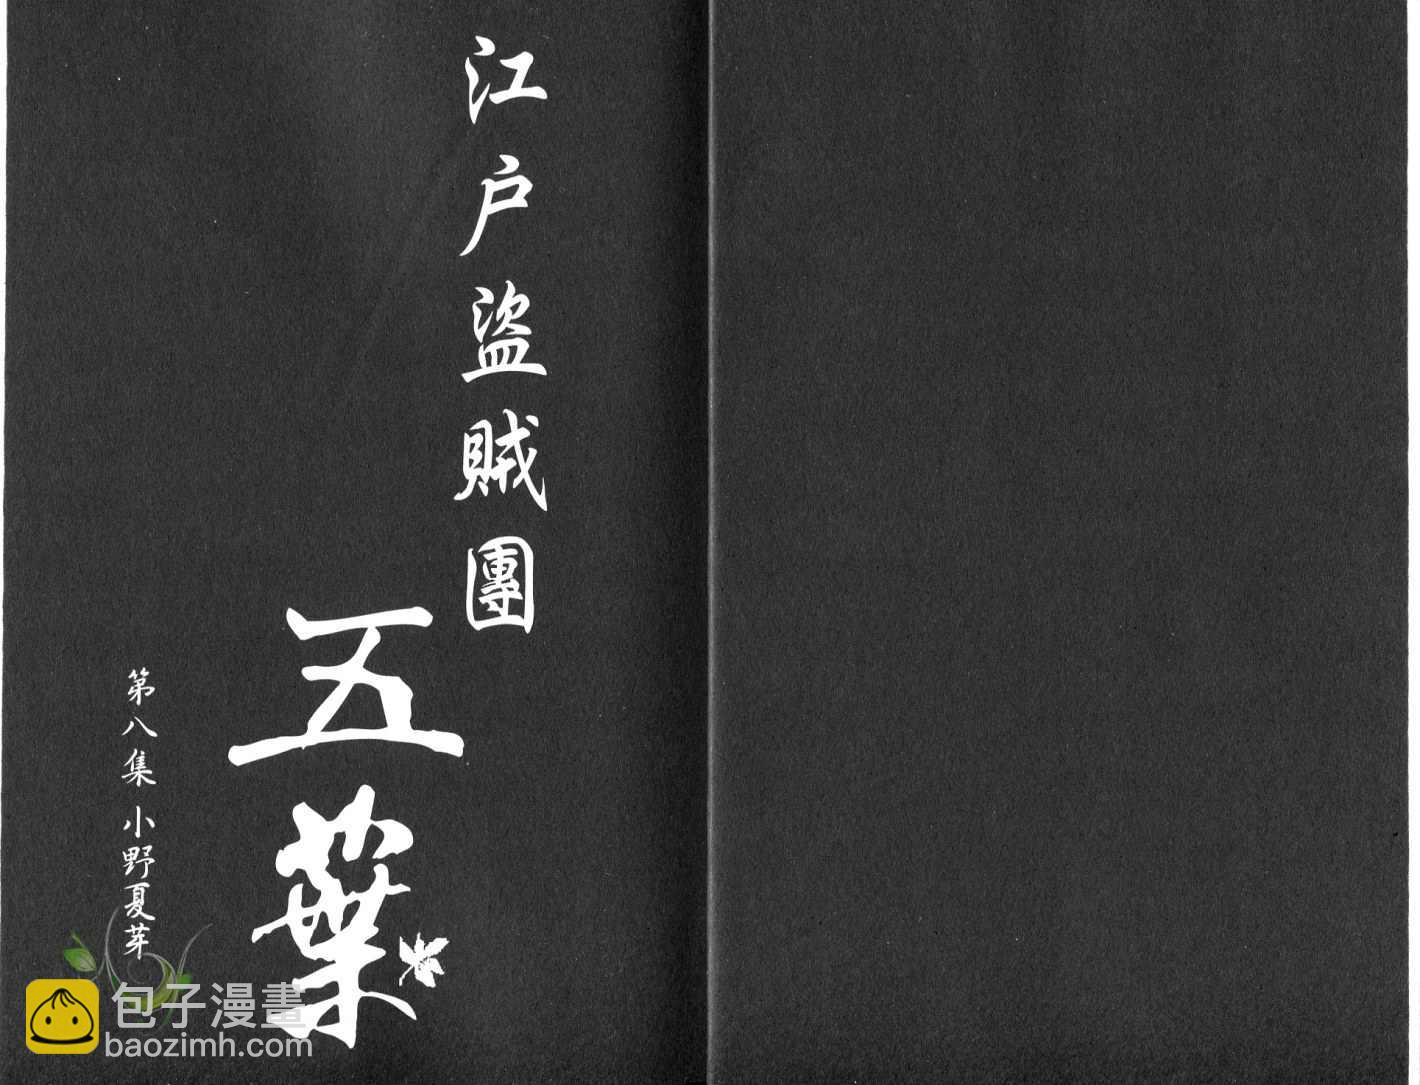 江户盜賊團
五葉
第八集 小野夏芽
包子漫畫
baozimh.com